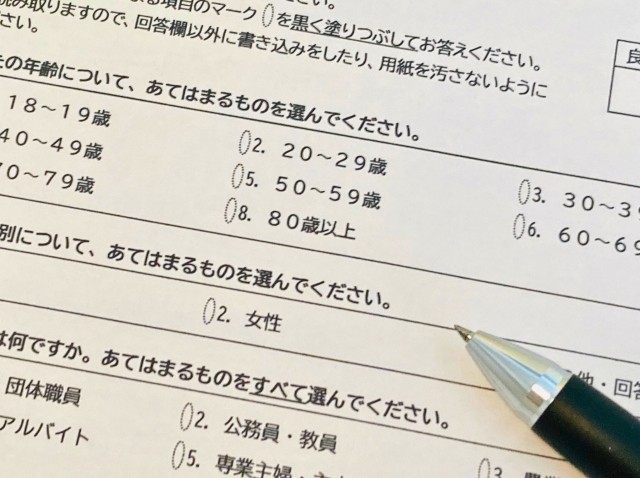 る項目のマーク を黒く塗りつぶしてお答えください。
読み取りますので、回答欄以外に書き込みをしたり、用紙を汚さないように
さい。
の年齢について、あてはまるものを選んでください。
18～19歳 2. 20～29歳 3. 30～3
40～49歳 5. 50～59歳 6. 60～69
70～79歳 8. 80歳以上
別について、あてはまるものを選んでください。
2. 女性 他・回答
は何ですか。あてはまるものをすべて選んでください。
団体職員 2. 公務員・教員 3.
アルバイト 5. 専業主婦・主
良